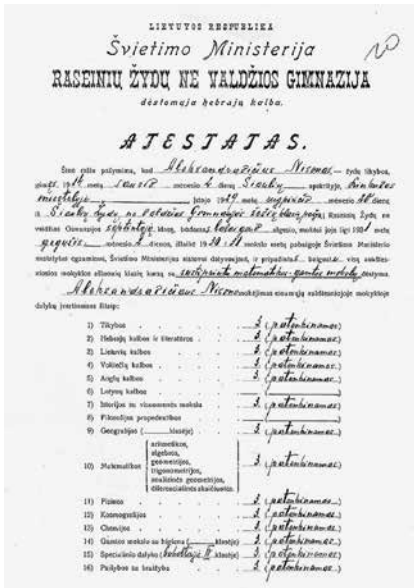 LIETUVOS RESPUBLIKA
Švietimo Ministerija
RASEINIŲ ŽYDŲ NE VALDŽIOS GIMNAZIJA
dėstomąja hebrajų kalba.
ATESTATAS.
Šiuo raštu pažymima, kad Aleksandravičius Nisonas — žydų tikybos,
gimęs 19 metų sausio mėnesio 4 dieną Šiaulių apskrityje,
miestelyje įstojo 1929 metų rugpiūčio mėnesio 28 dieną
iš Šiaulių Žydų ne valdžios Gimnazijos šešių klasių į Raseinių Žydų ne
valdžios Gimnazijos septintąją klasę, būdamas elgesio, mokėsi joje ligi 1931 metų
gegužės mėnesio 4 dienos, išlaikė 1930/31 mokslo metų pabaigoje Švietimo Ministerio
nustatytus egzaminus, Švietimo Ministerijos atstovui dalyvaujant, ir pripažintas baigusiu visą aukštes-
niosios mokyklos aštuonių klasių kursą su sustiprintu matematikos-gamtos mokslų dėstymu.
Aleksandravičiaus Nisono mokėjimas einamųjų aukštesniojoje mokykloje
dalykų įvertinamas šitaip:
1) Tikybos 3 (patenkinamas)
2) Hebrajų kalbos ir literatūros 3 (patenkinamas)
3) Lietuvių kalbos 3 (patenkinamas)
4) Vokiečių kalbos 3 (patenkinamas)
5) Anglų kalbos 3 (patenkinamas)
6) Lotynų kalbos
7) Istorijos su visuomenės mokslu 3 (patenkinamas)
8) Filosofijos propedeutikos
9) Geografijos ( klasėje) 3 (patenkinamas)
10) Matematikos
aritmetikos,
algebros,
geometrijos,
trigonometrijos,
analizinės geometrijos,
diferencialinės skaičiuotės.
3 (patenkinamas)
11) Fizikos 3 (patenkinamas)
12) Kosmografijos 3 (patenkinamas)
13) Chemijos 3 (patenkinamas)
14) Gamtos mokslo su higiena ( klasėje) 3 (patenkinamas)
15) Specialinio dalyko ( klasėje) 3 (patenkinamas)
16) Paišybos su braižyba 3 (patenkinamas)